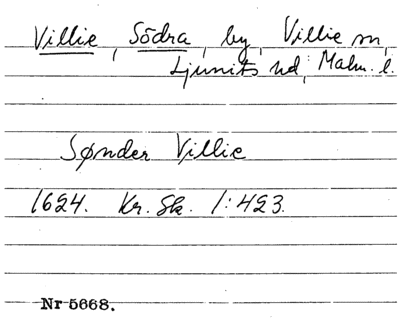 Villie, Södra, by, Villie sn,
Ljunits hd, Malm. l.
Sønder Villie
1624. Kr. Sk. 1:423.
Nr 5668.